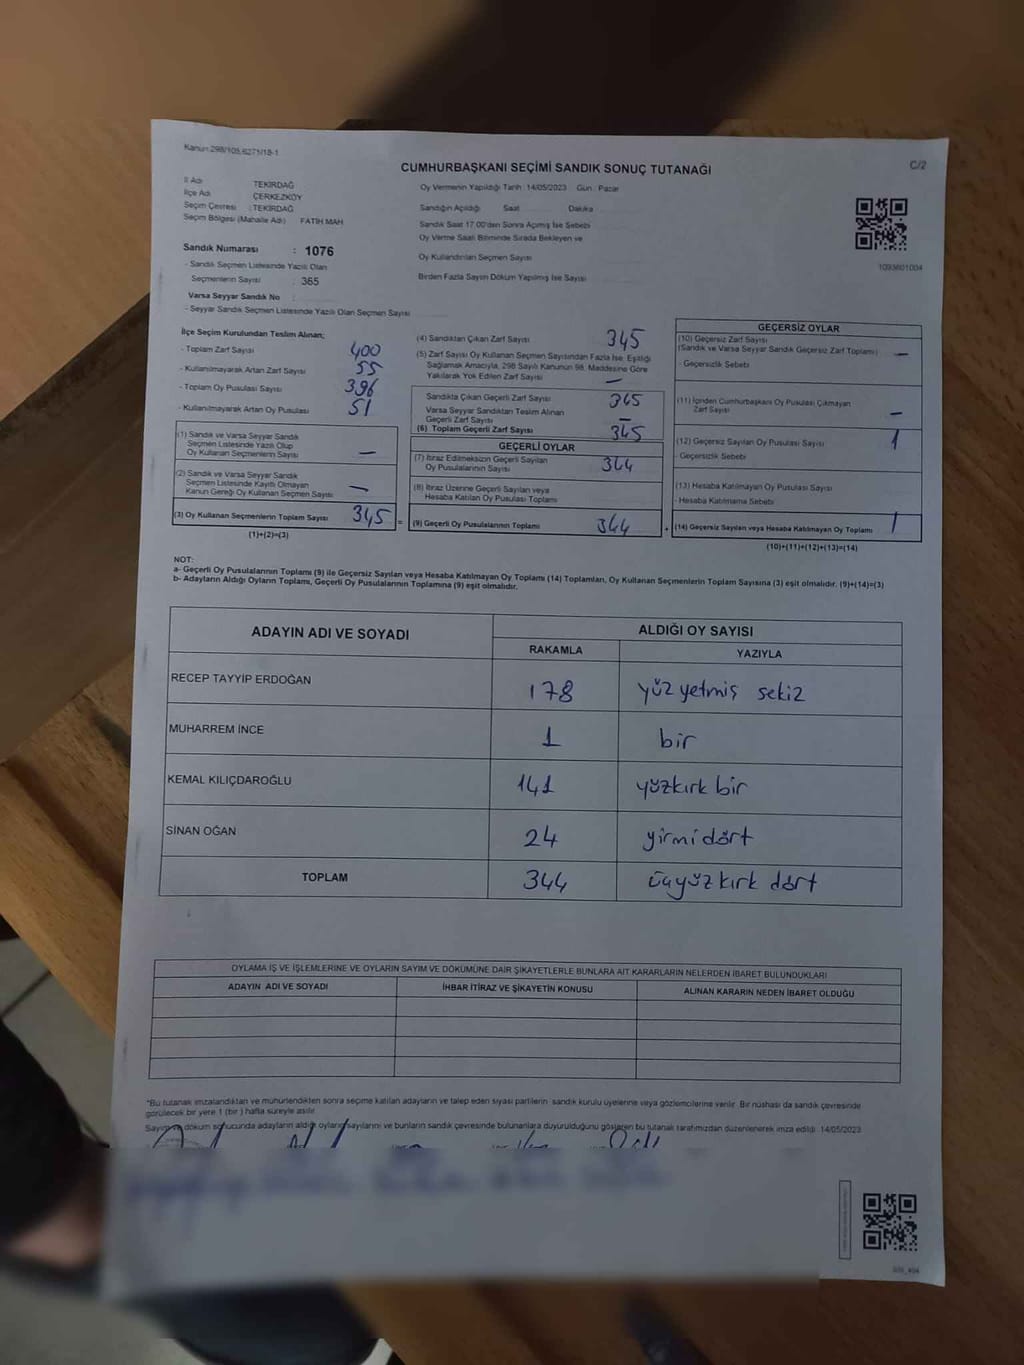 Kanun:298/105,6271/18-1
CUMHURBAŞKANI SEÇİMİ SANDIK SONUÇ TUTANAĞI
C/2
İl Adı TEKİRDAĞ
İlçe Adı ÇERKEZKÖY
Seçim Çevresi : TEKİRDAĞ
Seçim Bölgesi (Mahalle Adı) FATİH MAH
Oy Vermenin Yapıldığı Tarih :14/05/2023 Gün : Pazar
Sandığın Açıldığı Saat Dakika
Sandık Saat 17.00'den Sonra Açımış İse Sebebi
Oy Verme Saati Bitiminde Sırada Bekleyen ve
Oy Kullandırılan Seçmen Sayısı
Birden Fazla Sayım Döküm Yapılmış İse Sayısı
1093601004
Sandık Numarası : 1076
- Sandık Seçmen Listesinde Yazılı Olan
Seçmenlerin Sayısı : 365
Varsa Seyyar Sandık No :
- Seyyar Sandık Seçmen Listesinde Yazılı Olan Seçmen Sayısı
İlçe Seçim Kurulundan Teslim Alınan;
- Toplam Zarf Sayısı 400
- Kullanılmayarak Artan Zarf Sayısı 55
- Toplam Oy Pusulası Sayısı 396
- Kullanılmayarak Artan Oy Pusulası 51
(1) Sandık ve Varsa Seyyar Sandık
Seçmen Listesinde Yazılı Olup
Oy Kullanan Seçmenlerin Sayısı —
(2) Sandık ve Varsa Seyyar Sandık
Seçmen Listesinde Kayıtlı Olmayan
Kanun Gereği Oy Kullanan Seçmen Sayısı —
(3) Oy Kullanan Seçmenlerin Toplam Sayısı 345
(1)+(2)=(3)
(4) Sandıktan Çıkan Zarf Sayısı 345
(5) Zarf Sayısı Oy Kullanan Seçmen Sayısından Fazla İse, Eşitliği
Sağlamak Amacıyla, 298 Sayılı Kanunun 98. Maddesine Göre
Yakılarak Yok Edilen Zarf Sayısı —
Sandıkta Çıkan Geçerli Zarf Sayısı 345
Varsa Seyyar Sandıktan Teslim Alınan
Geçerli Zarf Sayısı —
(6) Toplam Geçerli Zarf Sayısı 345
GEÇERLİ OYLAR
(7) İtiraz Edilmeksizin Geçerli Sayılan
Oy Pusulalarının Sayısı 344
(8) İtiraz Üzerine Geçerli Sayılan veya
Hesaba Katılan Oy Pusulası Toplamı
= (9) Geçerli Oy Pusulalarının Toplamı 344
GEÇERSİZ OYLAR
(10) Geçersiz Zarf Sayısı
(Sandık ve Varsa Seyyar Sandık Geçersiz Zarf Toplamı) —
- Geçersizlik Sebebi
(11) İçinden Cumhurbaşkanı Oy Pusulası Çıkmayan
Zarf Sayısı —
(12) Geçersiz Sayılan Oy Pusulası Sayısı 1
- Geçersizlik Sebebi
(13) Hesaba Katılmayan Oy Pusulası Sayısı
- Hesaba Katılmama Sebebi
+ (14) Geçersiz Sayılan veya Hesaba Katılmayan Oy Toplamı 1
(10)+(11)+(12)+(13)=(14)
NOT:
a- Geçerli Oy Pusulalarının Toplamı (9) ile Geçersiz Sayılan veya Hesaba Katılmayan Oy Toplamı (14) Toplamları, Oy Kullanan Seçmenlerin Toplam Sayısına (3) eşit olmalıdır. (9)+(14)=(3)
b- Adayların Aldığı Oyların Toplamı, Geçerli Oy Pusulalarının Toplamına (9) eşit olmalıdır.
ADAYIN ADI VE SOYADI ALDIĞI OY SAYISI
RAKAMLA YAZIYLA
RECEP TAYYİP ERDOĞAN 178 yüz yetmiş sekiz
MUHARREM İNCE 1 bir
KEMAL KILIÇDAROĞLU 141 yüzkırk bir
SİNAN OĞAN 24 yirmi dört
TOPLAM 344 üçyüz kırk dört
OYLAMA İŞ VE İŞLEMLERİNE VE OYLARIN SAYIM VE DÖKÜMÜNE DAİR ŞİKAYETLERLE BUNLARA AİT KARARLARIN NELERDEN İBARET BULUNDUKLARI
ADAYIN ADI VE SOYADI İHBAR İTİRAZ VE ŞİKAYETİN KONUSU ALINAN KARARIN NEDEN İBARET OLDUĞU
*Bu tutanak imzalandıktan ve mühürlendikten sonra seçime katılan adayların ve talep eden siyasi partilerin sandık kurulu üyelerine veya gözlemcilerine verilir. Bir nüshası da sandık çevresinde
görülecek bir yere 1 (bir ) hafta süreyle asılır.
Sayım ve döküm sonucunda adayların aldığı oyların sayılarını ve bunların sandık çevresinde bulunanlara duyurulduğunu gösteren bu tutanak tarafımızdan düzenlenerek imza edildi. 14/05/2023